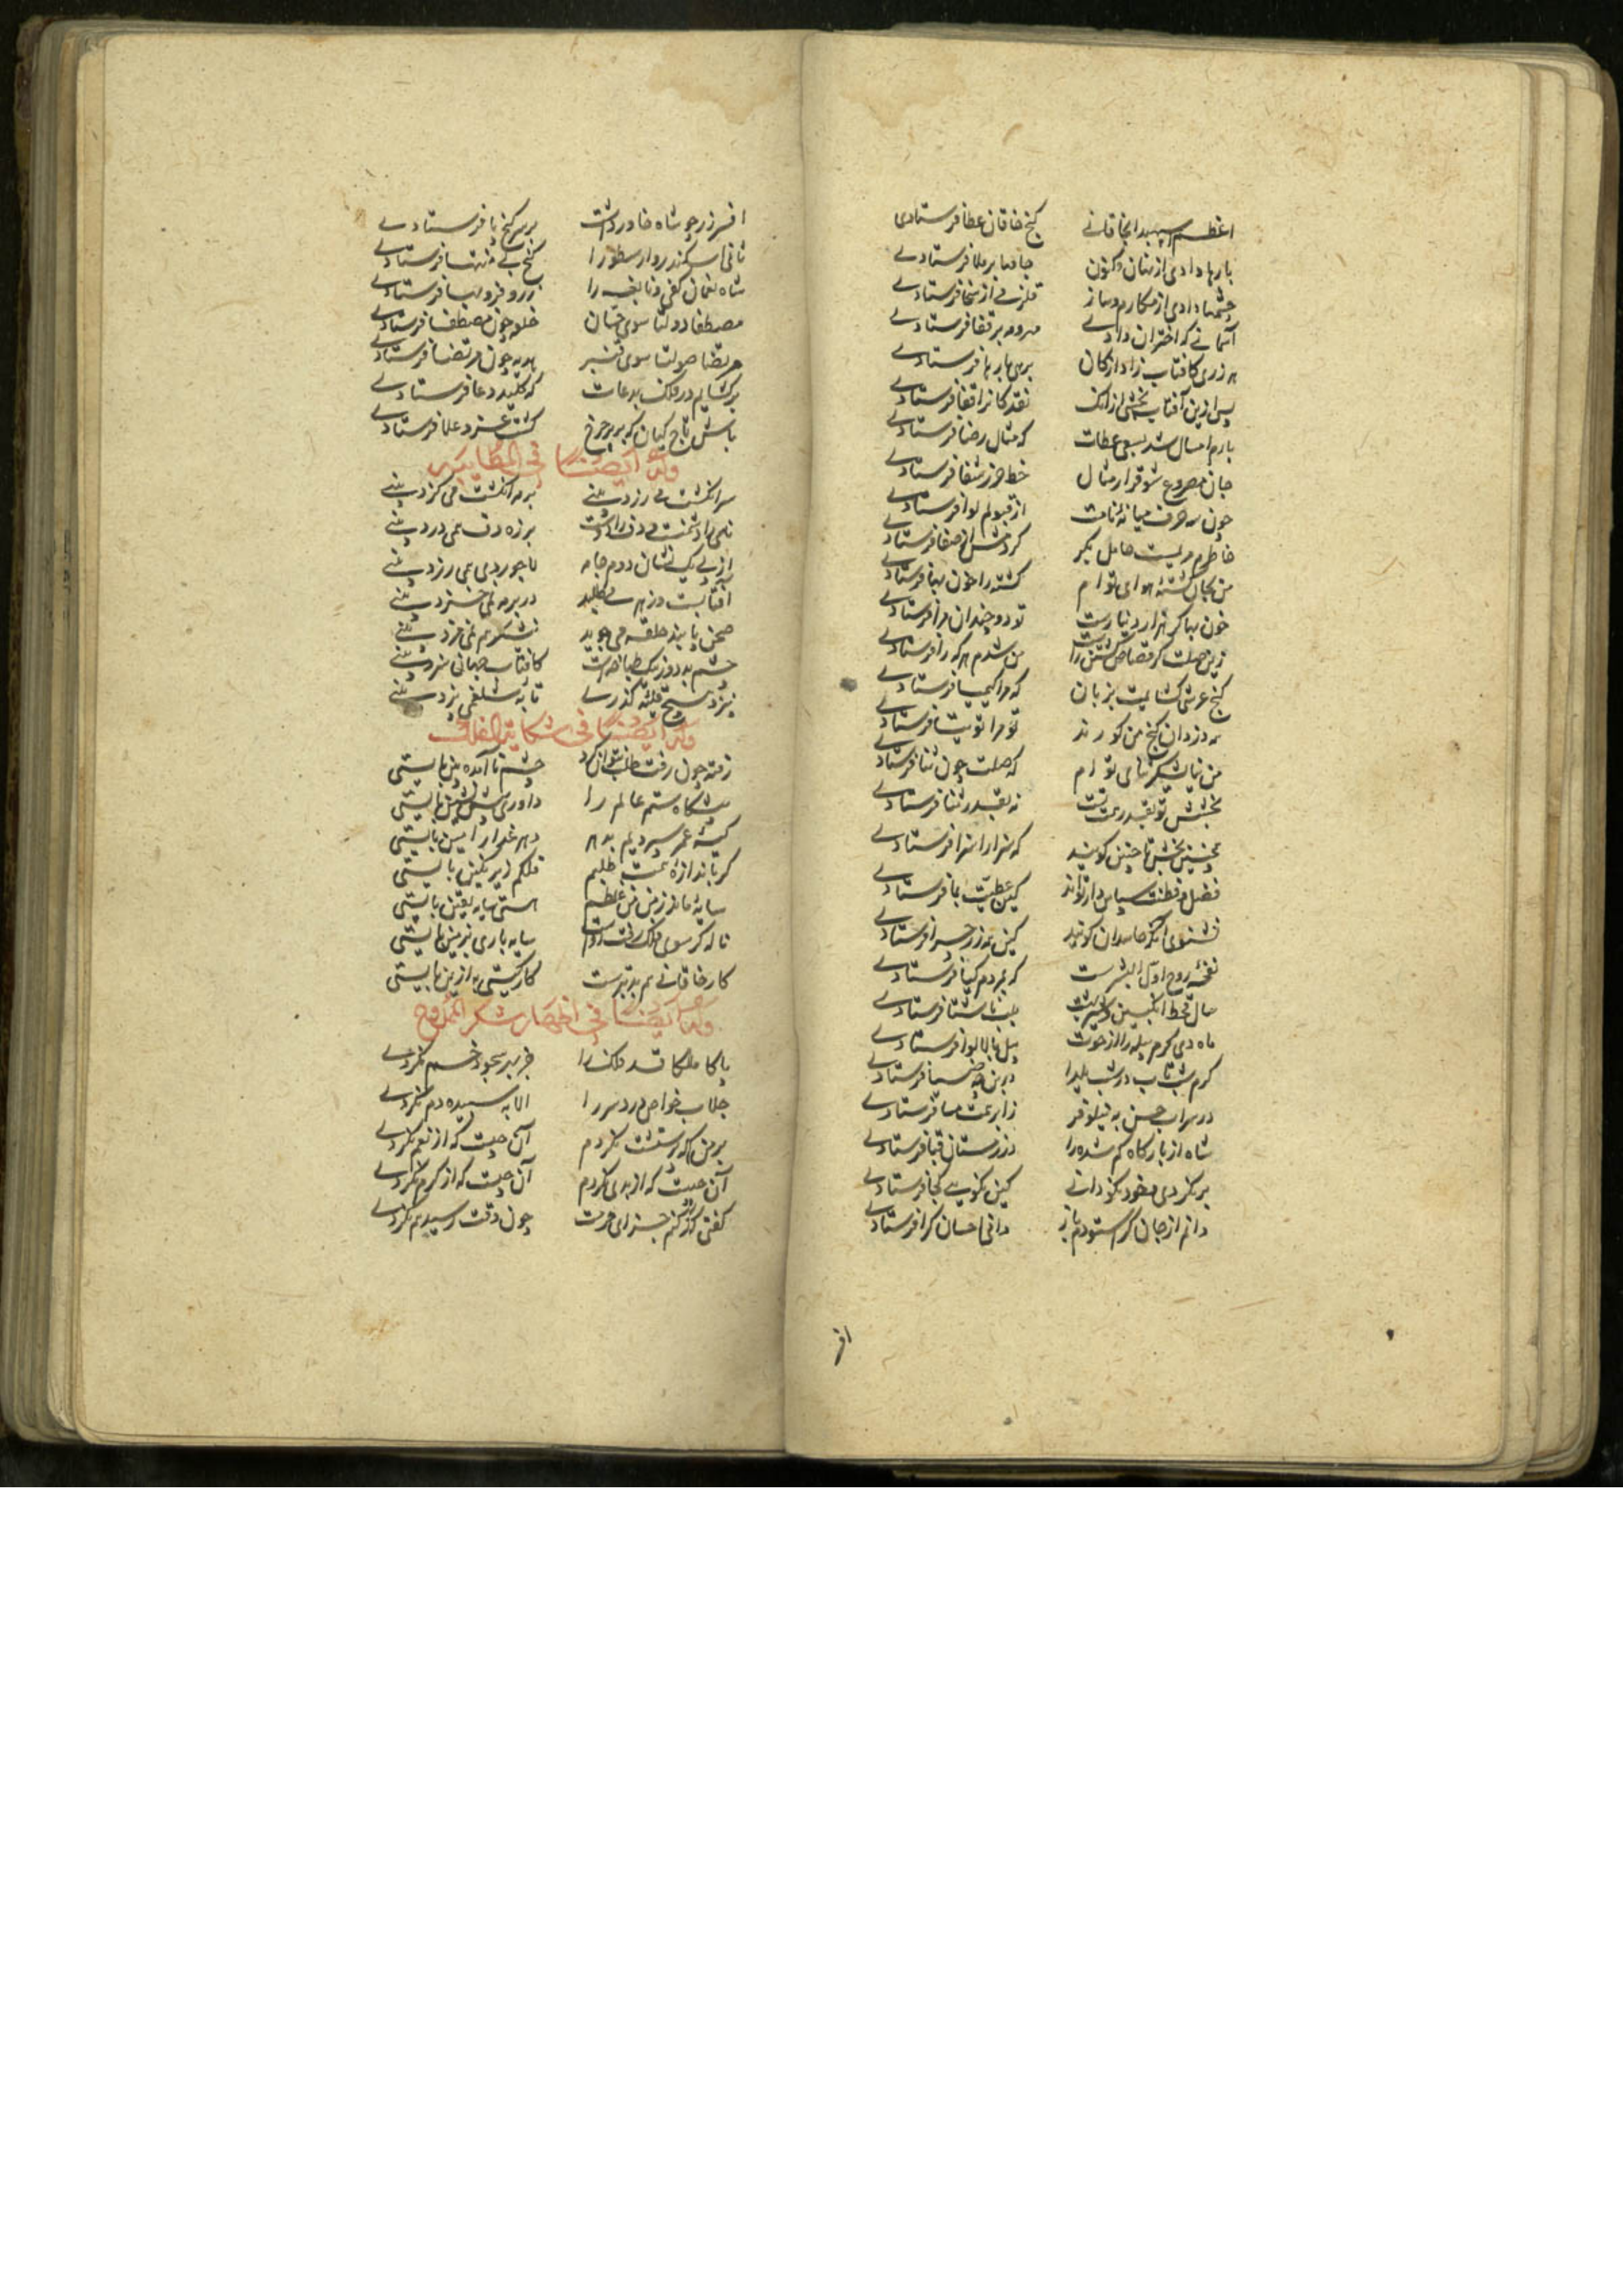 اعظم اسپهبدا بخاقانی گنج خاقان عطا فرستادی
بارها دادی از بنان و کنون جامها بر ملا فرستادی
چشمها دادی از مکارم و باز قلزمی از سخا فرستادی
آسمانی که اختران دادی مهر و مه بر قفا فرستادی
هر زری کافتاب زاد از کان برهی بارها فرستادی
پس ازین آفتاب بخشی از آنک نقد کان را قفا فرستادی
بارم امسال شد بسعی عطات که مثال رضا فرستادی
جان مصروع شوق را ز مثال خط حرز شفا فرستادی
چون سه حرف میانهٔ نامت از قبولم لوا فرستادی
خاطرم مریمیست حامل بکر کز دمش از صفا فرستادی
من بجان کشتهٔ هوای توام کشته را خون بها فرستادی
خون بها گر هزار دینارست تو دو چندان مرا فرستادی
زین صلت کو قصاص کشتن را من شدم هر که را فرستادی
گنج عرشی گشایمت بزبان که مرا کیمیا فرستادی
به دزدان گنج من کورند تو مرا توتیا فرستادی
من نیایشگر نیای توام که صلت چون نیا فرستادی
بخشش تو بقدر همت تست نه بقدر ثنا فرستادی
همچنین بخش تا چنین گویند که سزا را سزا فرستادی
فضل و فطنت سپاس دار تواند کین عطیت بما فرستادی
نشنوی آنکه حاسدان گویند کین همه زر چرا فرستادی
نفخهٔ روح اول البشرست که بمردم گیا فرستادی
سال قحط انگبین و شیر بهشت بلب ناشتا فرستادی
ماه دی کرم پیله را از حوت پیل بالا نوا فرستادی
کرم شب تاب را شب یلدا در بن چه ضیا فرستادی
در سراب حسن به نیلوفر ز ابر همت صبا فرستادی
شاه از بارگاه گم شده را در زمستان قبا فرستادی
بر نکردی و خود نکو دانی کین نکویی کجا فرستادی
دانم از جان کرا ستودم باز دانی احسان کرا فرستادی
افر
افسر زر چو شاه خاور داشت بر سر گنج پا فرستادی
ثانی اسکندر و ارسطو را گنج بی منتها فرستادی
شاه نعمان کفی و نابغه را زر و فر و بها فرستادی
مصطفا دولتا سوی حسان خلعه چون مصطفا فرستادی
مرتضا صولتا سوی قنبر هدیه چون مرتضا فرستادی
بر گشایم در فلک بدعات که کلید دعا فرستادی
باش تاج کیان که بر سر چرخ گشت عز و علا فرستادی
وله ایضا فی المطایبه
سر انگشت می رزد بینی بر مه انگشت می گزد بینی
نامی را دشمنت دف داشت بر زه دف همی درد بینی
از پی یک نشان دوم جامه لاجوردی همی رزد بینی
آفتابیست وز برم طلبد در برم می خزد بینی
صحن پابند حلقه می جوید نشکرهم نمی مزد بینی
چشم بد دور یک طبانچه شت کافتاب جهان سزد بینی
پیزد سیخ قلیه کذری تا به شلغمی پزد بینی
وله ایضا فی شکایة الفلک
رفته چون رفت طلب نتوان کرد چشم ناآمده بین بایستی
پیشگاه ستم عالم را داوری پیش نشین بایستی
کیسهٔ عمر سپردیم بدهر دهر غدار امین بایستی
گر باندازهٔ همت طلبم فلکم زیر نگین بایستی
سایهٔ ماند ز من من غلطم هستی سایه یقین بایستی
ناله گر سوی فلک رفت رواست سایه باری بزمین بایستی
کار خاقانی هم بد بترست کار گیتی به ازین بایستی
وله ایضا فی اظهار شکر الممدوح
پاکا ملکا قد فلک را جز بهر سجود خم نکردی
جلاب خواص درد سر را الا به سپیده دم نکردی
بر من که پرستشت نکردم آن چیست که از نعم نکردی
آن چیست که از بدی نکردم آن چیست که از کرم نکردی
گفتی که کنم جزای جرمت چون وقت رسید هم نکردی